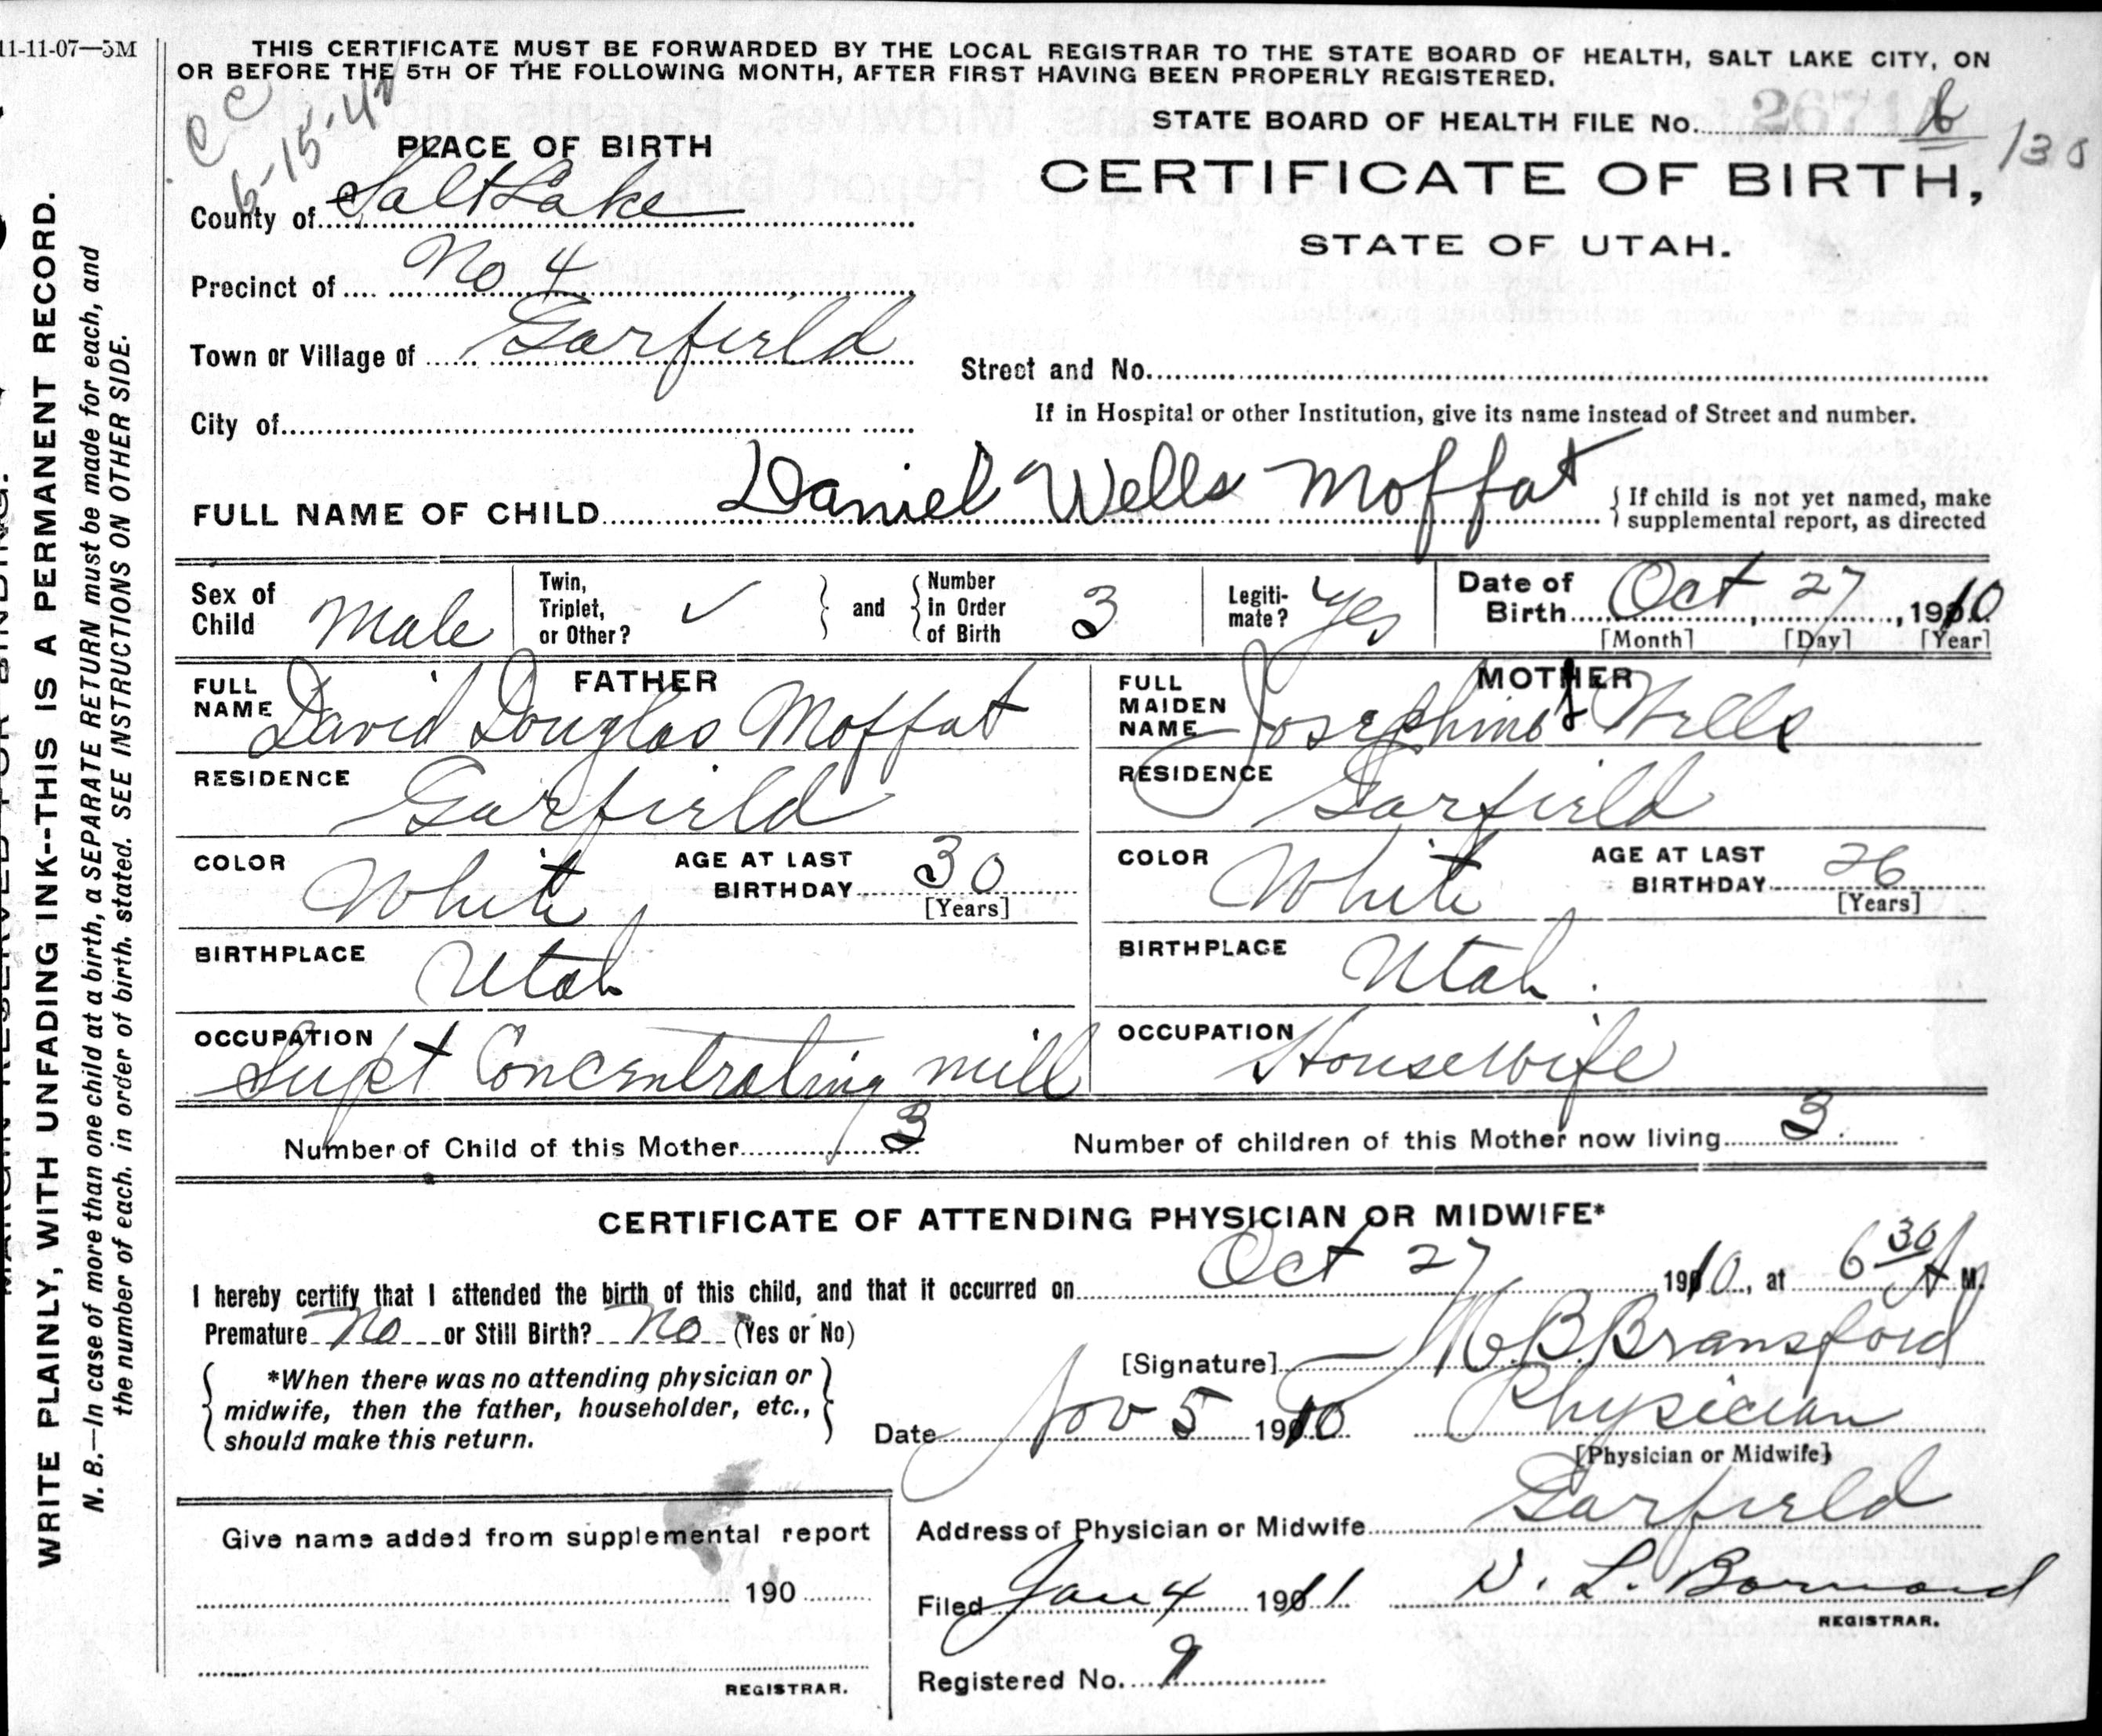 11-11-07—5M
THIS CERTIFICATE MUST BE FORWARDED BY THE LOCAL REGISTRAR TO THE STATE BOARD OF HEALTH, SALT LAKE CITY, ON
OR BEFORE THE 5TH OF THE FOLLOWING MONTH, AFTER FIRST HAVING BEEN PROPERLY REGISTERED.
CC
6-15-42
STATE BOARD OF HEALTH FILE No. 2671
PLACE OF BIRTH
CERTIFICATE OF BIRTH,
STATE OF UTAH.
County of Salt Lake
Precinct of No 4
Town or Village of Garfield
Street and No.
If in Hospital or other Institution, give its name instead of Street and number.
City of
FULL NAME OF CHILD Daniel Wells Moffat
{ If child is not yet named, make
supplemental report, as directed
Sex of Child Male
Twin, Triplet, or Other? ✓ } and { Number in Order of Birth 3
Legitimate? Yes
Date of Birth Oct 27, 1910
[Month] [Day] [Year]
FATHER
FULL NAME David Douglas Moffat
RESIDENCE Garfield
COLOR White AGE AT LAST BIRTHDAY 30
[Years]
BIRTHPLACE Utah
OCCUPATION Supt Concentrating mill
MOTHER
FULL MAIDEN NAME Josephine Wells
RESIDENCE Garfield
COLOR White AGE AT LAST BIRTHDAY 26
[Years]
BIRTHPLACE Utah.
OCCUPATION Housewife
Number of Child of this Mother 3 Number of children of this Mother now living 3
CERTIFICATE OF ATTENDING PHYSICIAN OR MIDWIFE*
I hereby certify that I attended the birth of this child, and that it occurred on Oct 27 1910, at 6 30 A M.
Premature No or Still Birth? No (Yes or No)
[Signature] H B. Bransford
{ *When there was no attending physician or
midwife, then the father, householder, etc.,
should make this return. }
Date Nov 5 1910 Physician
[Physician or Midwife]
Give name added from supplemental report
190
REGISTRAR.
Address of Physician or Midwife Garfield
Filed Jan 4 1911 L.
REGISTRAR.
Registered No. 9
WRITE PLAINLY, WITH UNFADING INK--THIS IS A PERMANENT RECORD.
N. B.—In case of more than one child at a birth, a SEPARATE RETURN must be made for each, and
the number of each, in order of birth, stated. SEE INSTRUCTIONS ON OTHER SIDE.